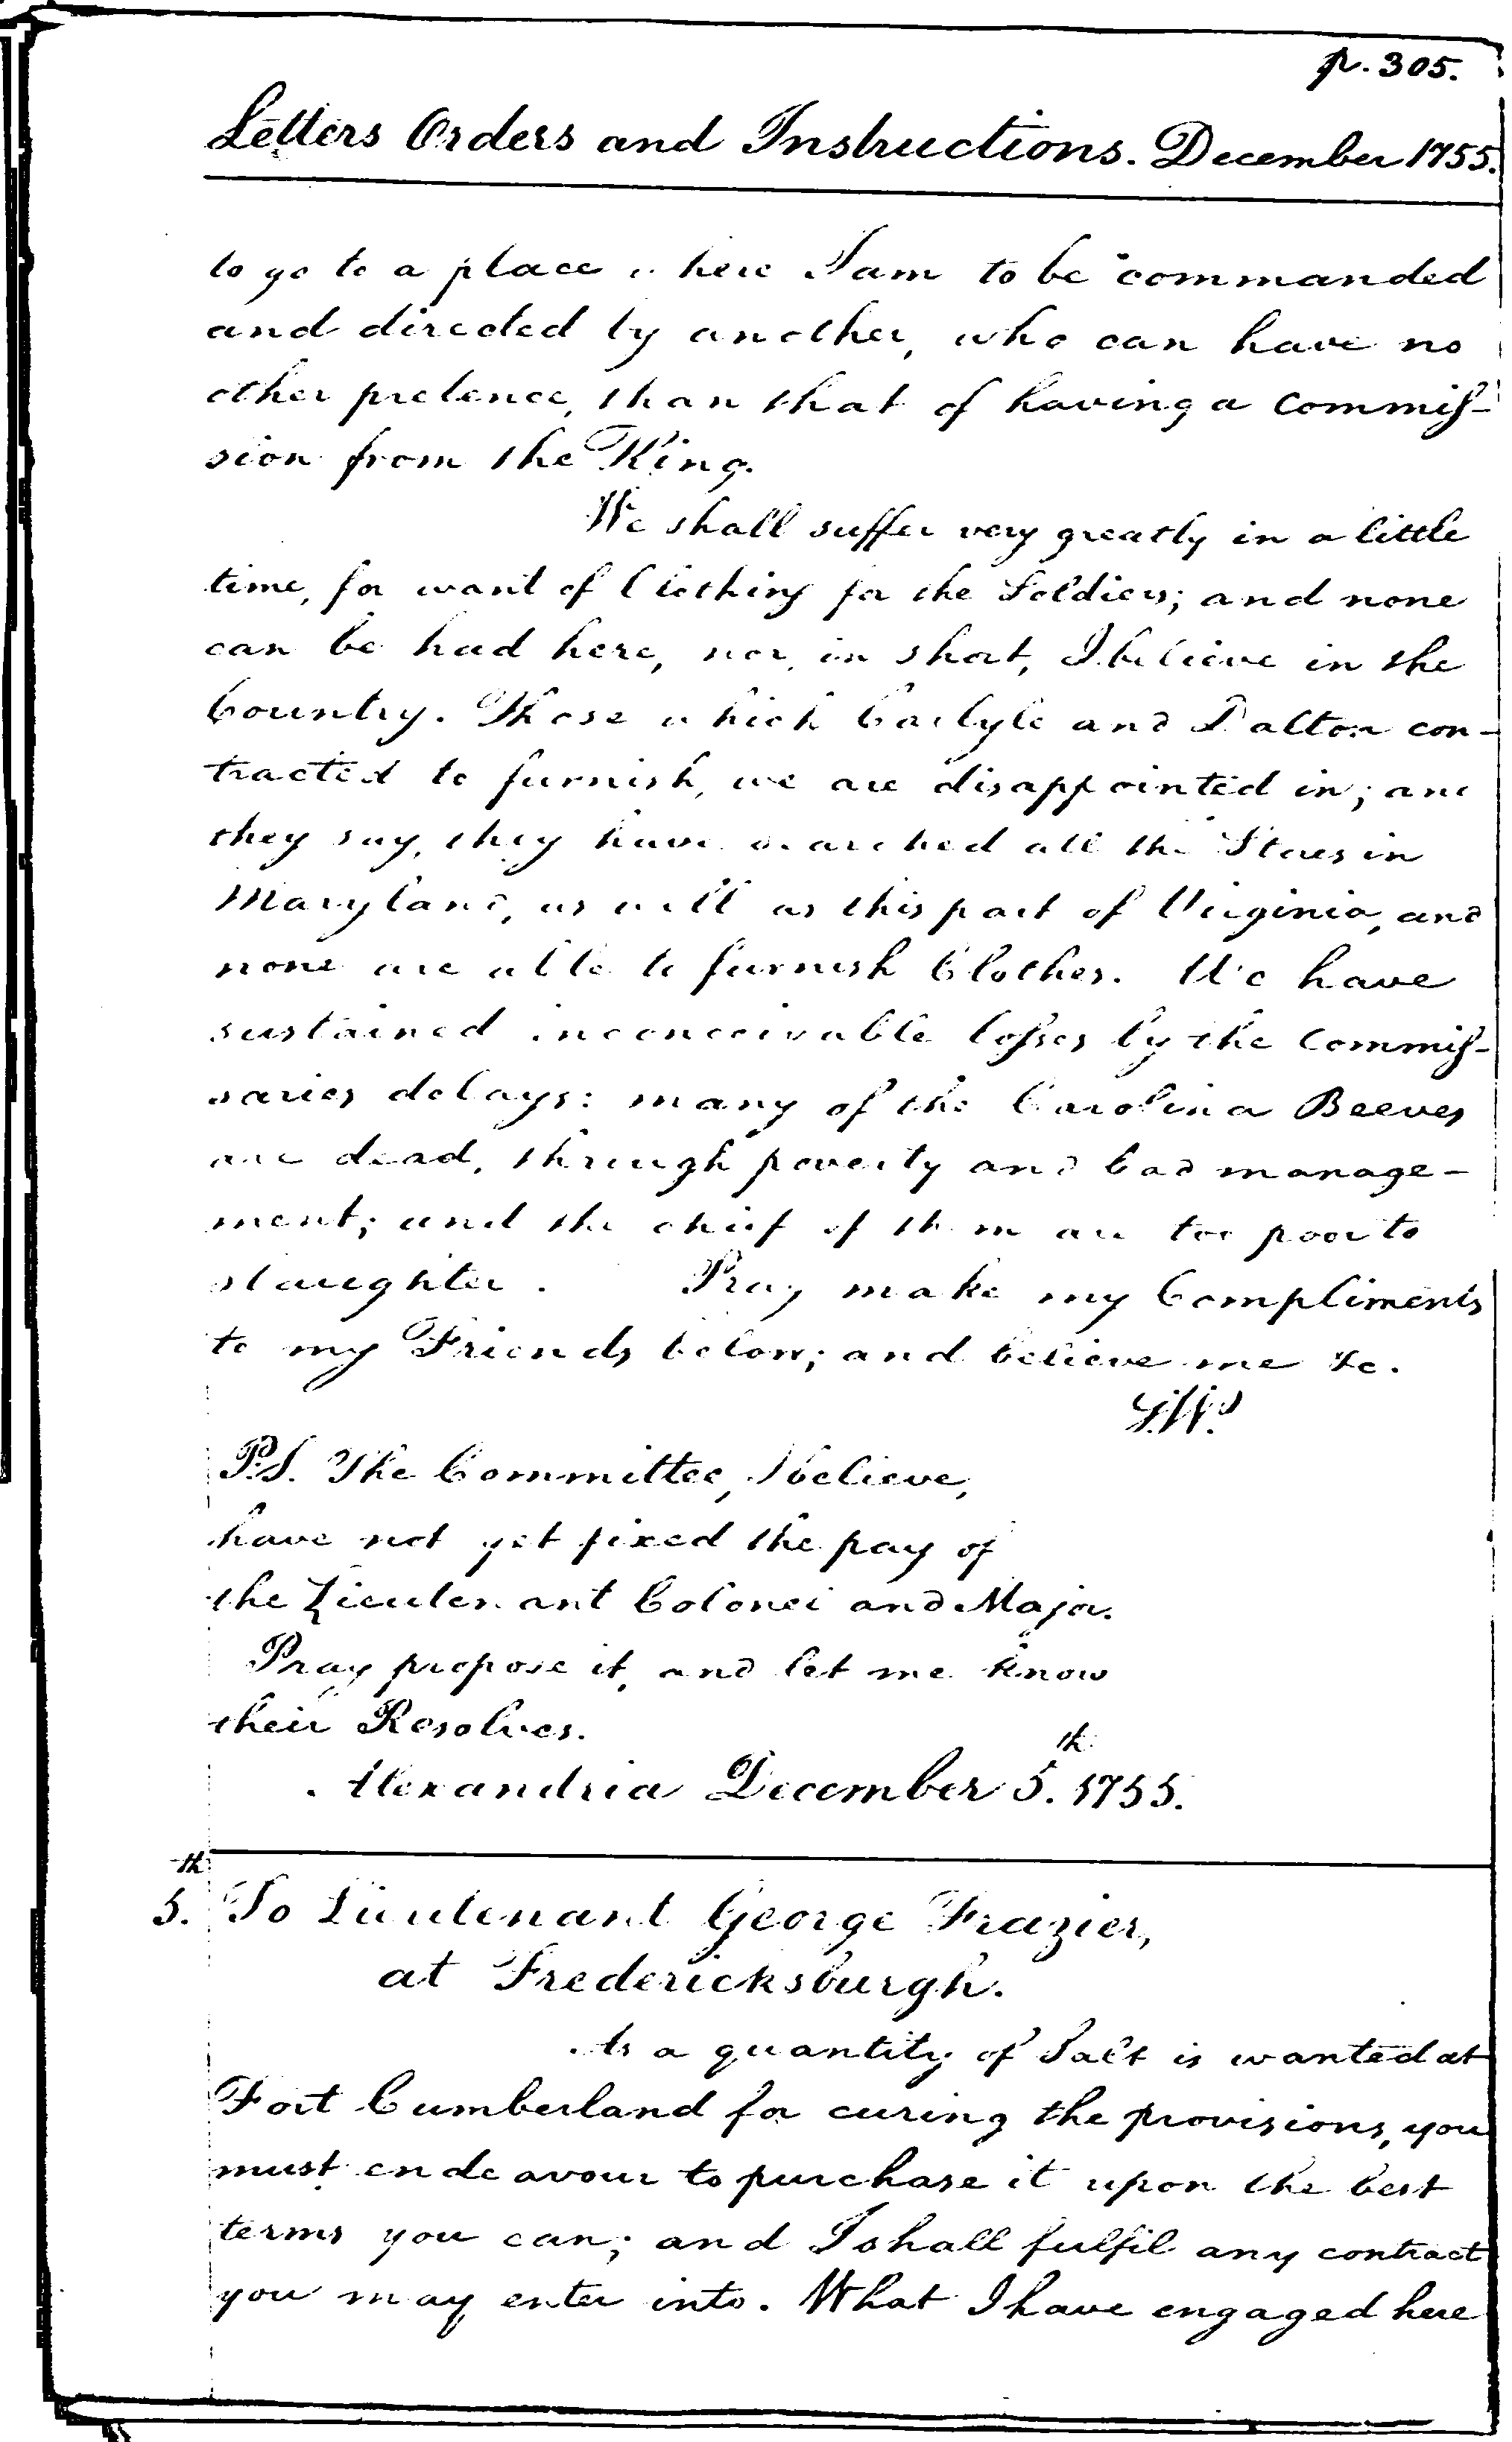 p. 305.
Letters Orders and Instructions. December 1755.
to go to a place where I am to be commanded
and directed by another, who can have no
other pretence, than that of having a Commis-
sion from the King.
We shall suffer very greatly in a little
time, for want of Clothing for the Soldiers; and none
can be had here, nor, in short, I believe in the
Country. Those which Carlyle and Dalton con-
tracted to furnish, we are disappointed in; and
they say, they have searched all the Stores in
Maryland, as well as this part of Virginia, and
none are able to furnish Clothes. We have
sustained inconceivable losses by the Commis-
saries delays: many of the Carolina Beeves
are dead, through poverty and bad manage-
ment; and the chief of them are too poor to
slaughter. Pray make my Compliments
to my Friends below; and believe me &c.
G.W.
P.S. The Committee, I believe,
have not yet fixed the pay of
the Lieutenant Colonel and Major.
Pray propose it, and let me know
their Resolves.
Alexandria December 5.th 1755.
5.th To Lieutenant George Frazier,
at Fredericksburgh.
As a quantity of Salt is wanted at
Fort Cumberland for curing the provisions, you
must endeavour to purchase it upon the best
terms you can; and I shall fulfil any contract
you may enter into. What I have engaged here